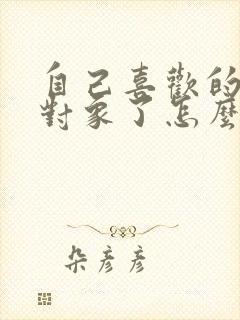 自己喜歡的
對象了怎麼
朵彥彥